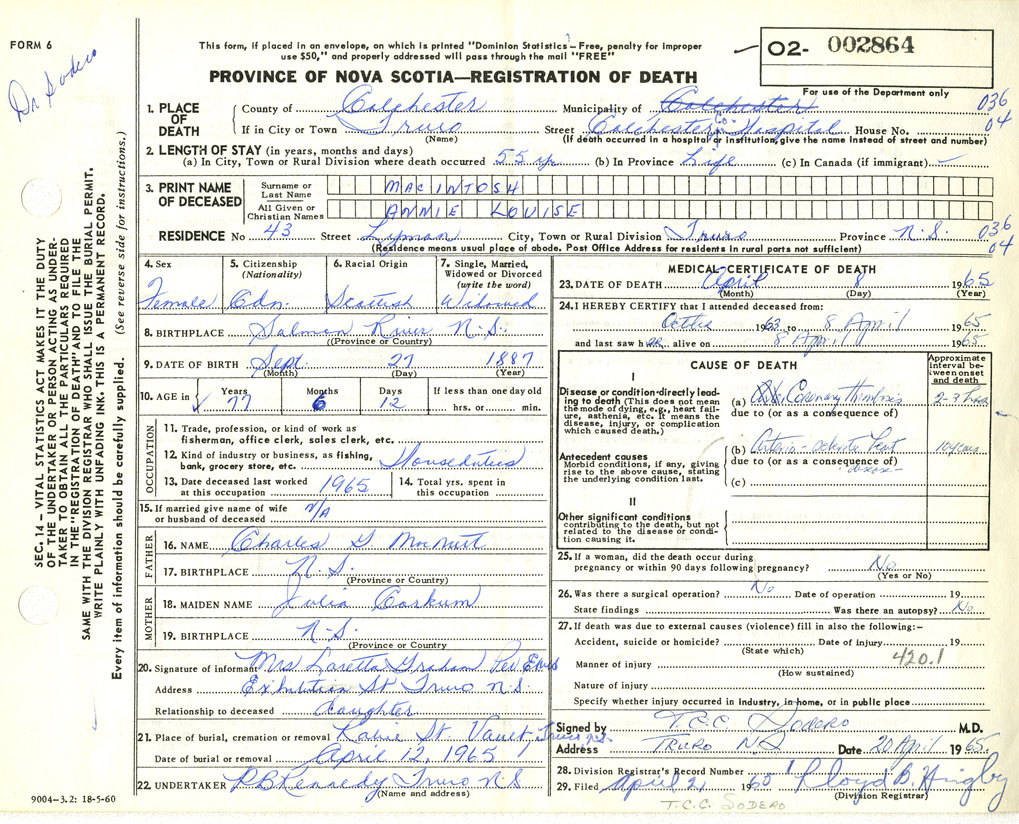 FORM 6
Dr Sodero
This form, if placed in an envelope, on which is printed "Dominion Statistics - Free, penalty for improper
use $50," and properly addressed will pass through the mail "FREE"
PROVINCE OF NOVA SCOTIA—REGISTRATION OF DEATH
02- 002864
For use of the Department only
1. PLACE OF DEATH
County of Colchester Municipality of Colchester 036
If in City or Town Truro Street Colchester Co Hospital House No. 04
(Name) (If death occurred in a hospital or institution, give the name instead of street and number)
2. LENGTH OF STAY (in years, months and days)
(a) In City, Town or Rural Division where death occurred 55 yr (b) In Province Life (c) In Canada (if immigrant) —
3. PRINT NAME OF DECEASED
Surname or Last Name MACINTOSH
All Given or Christian Names ANNIE LOUISE
RESIDENCE No 43 Street Lyman City, Town or Rural Division Truro Province N.S. 036
04
(Residence means usual place of abode. Post Office Address for residents in rural parts not sufficient)
4. Sex
Female
5. Citizenship (Nationality)
Cdn.
6. Racial Origin
Scottish
7. Single, Married, Widowed or Divorced (write the word)
Widowed
8. BIRTHPLACE Salmon River N.S.
(Province or Country)
9. DATE OF BIRTH Sept 27 1887
(Month) (Day) (Year)
10. AGE in Years 77 Months 6 Days 12 If less than one day old hrs. or min.
OCCUPATION
11. Trade, profession, or kind of work as
fisherman, office clerk, sales clerk, etc.
12. Kind of industry or business, as fishing,
bank, grocery store, etc. Houseduties
13. Date deceased last worked at this occupation 1965
14. Total yrs. spent in this occupation
15. If married give name of wife or husband of deceased N/A
FATHER
16. NAME Charles G.
17. BIRTHPLACE N.S.
(Province or Country)
MOTHER
18. MAIDEN NAME Julia
19. BIRTHPLACE N.S.
(Province or Country)
20. Signature of informant Mrs Loretta Graham Per
Address Exhibition St Truro N.S.
Relationship to deceased daughter
21. Place of burial, cremation or removal Robie St. Vault, Truro N.S.
Date of burial or removal April 12, 1965
22. UNDERTAKER R B Kennedy Truro N S
(Name and address)
9004—3.2: 18-5-60
MEDICAL CERTIFICATE OF DEATH
23. DATE OF DEATH April 8 1965
(Month) (Day) (Year)
24. I HEREBY CERTIFY that I attended deceased from:
1963 to 8 April 1965
and last saw her alive on 8 April 1965
CAUSE OF DEATH
Approximate interval between onset and death
I
Disease or condition directly leading to death (This does not mean the mode of dying, e.g., heart failure, asthenia, etc. It means the disease, injury, or complication which caused death.)
(a) Coronary Thrombosis 2-3 hours
due to (or as a consequence of)
Antecedent causes
Morbid conditions, if any, giving rise to the above cause, stating the underlying condition last.
(b) Arterio-sclerotic heart disease 10 years
due to (or as a consequence of)
(c)
II
Other significant conditions
contributing to the death, but not related to the disease or condition causing it.
25. If a woman, did the death occur during
pregnancy or within 90 days following pregnancy? No
(Yes or No)
26. Was there a surgical operation? No Date of operation 19
State findings Was there an autopsy? No
27. If death was due to external causes (violence) fill in also the following:—
Accident, suicide or homicide? Date of injury 19
(State which) 420.1
Manner of injury
(How sustained)
Nature of injury
Specify whether injury occurred in industry, in home, or in public place
Signed by T.C.C. Sodero M.D.
Address TRURO NS Date 20 April 1965
28. Division Registrar's Record Number
29. Filed April 21 1965 Lloyd B. Higby
(Division Registrar)
T.C.C. SODERO
SEC. 14 — VITAL STATISTICS ACT MAKES IT THE DUTY
OF THE UNDERTAKER OR PERSON ACTING AS UNDER-
TAKER TO OBTAIN ALL THE PARTICULARS REQUIRED
IN THE "REGISTRATION OF DEATH" AND TO FILE THE
SAME WITH THE DIVISION REGISTRAR WHO SHALL ISSUE THE BURIAL PERMIT.
WRITE PLAINLY WITH UNFADING INK. THIS IS A PERMANENT RECORD.
Every item of information should be carefully supplied. (See reverse side for instructions.)